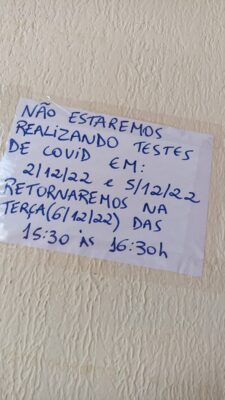 NÃO ESTAREMOS
REALIZANDO TESTES
DE COVID EM:
2/12/22 e 5/12/22
RETORNAREMOS NA
TERÇA(6/12/22) DAS
15:30 ÀS 16:30h